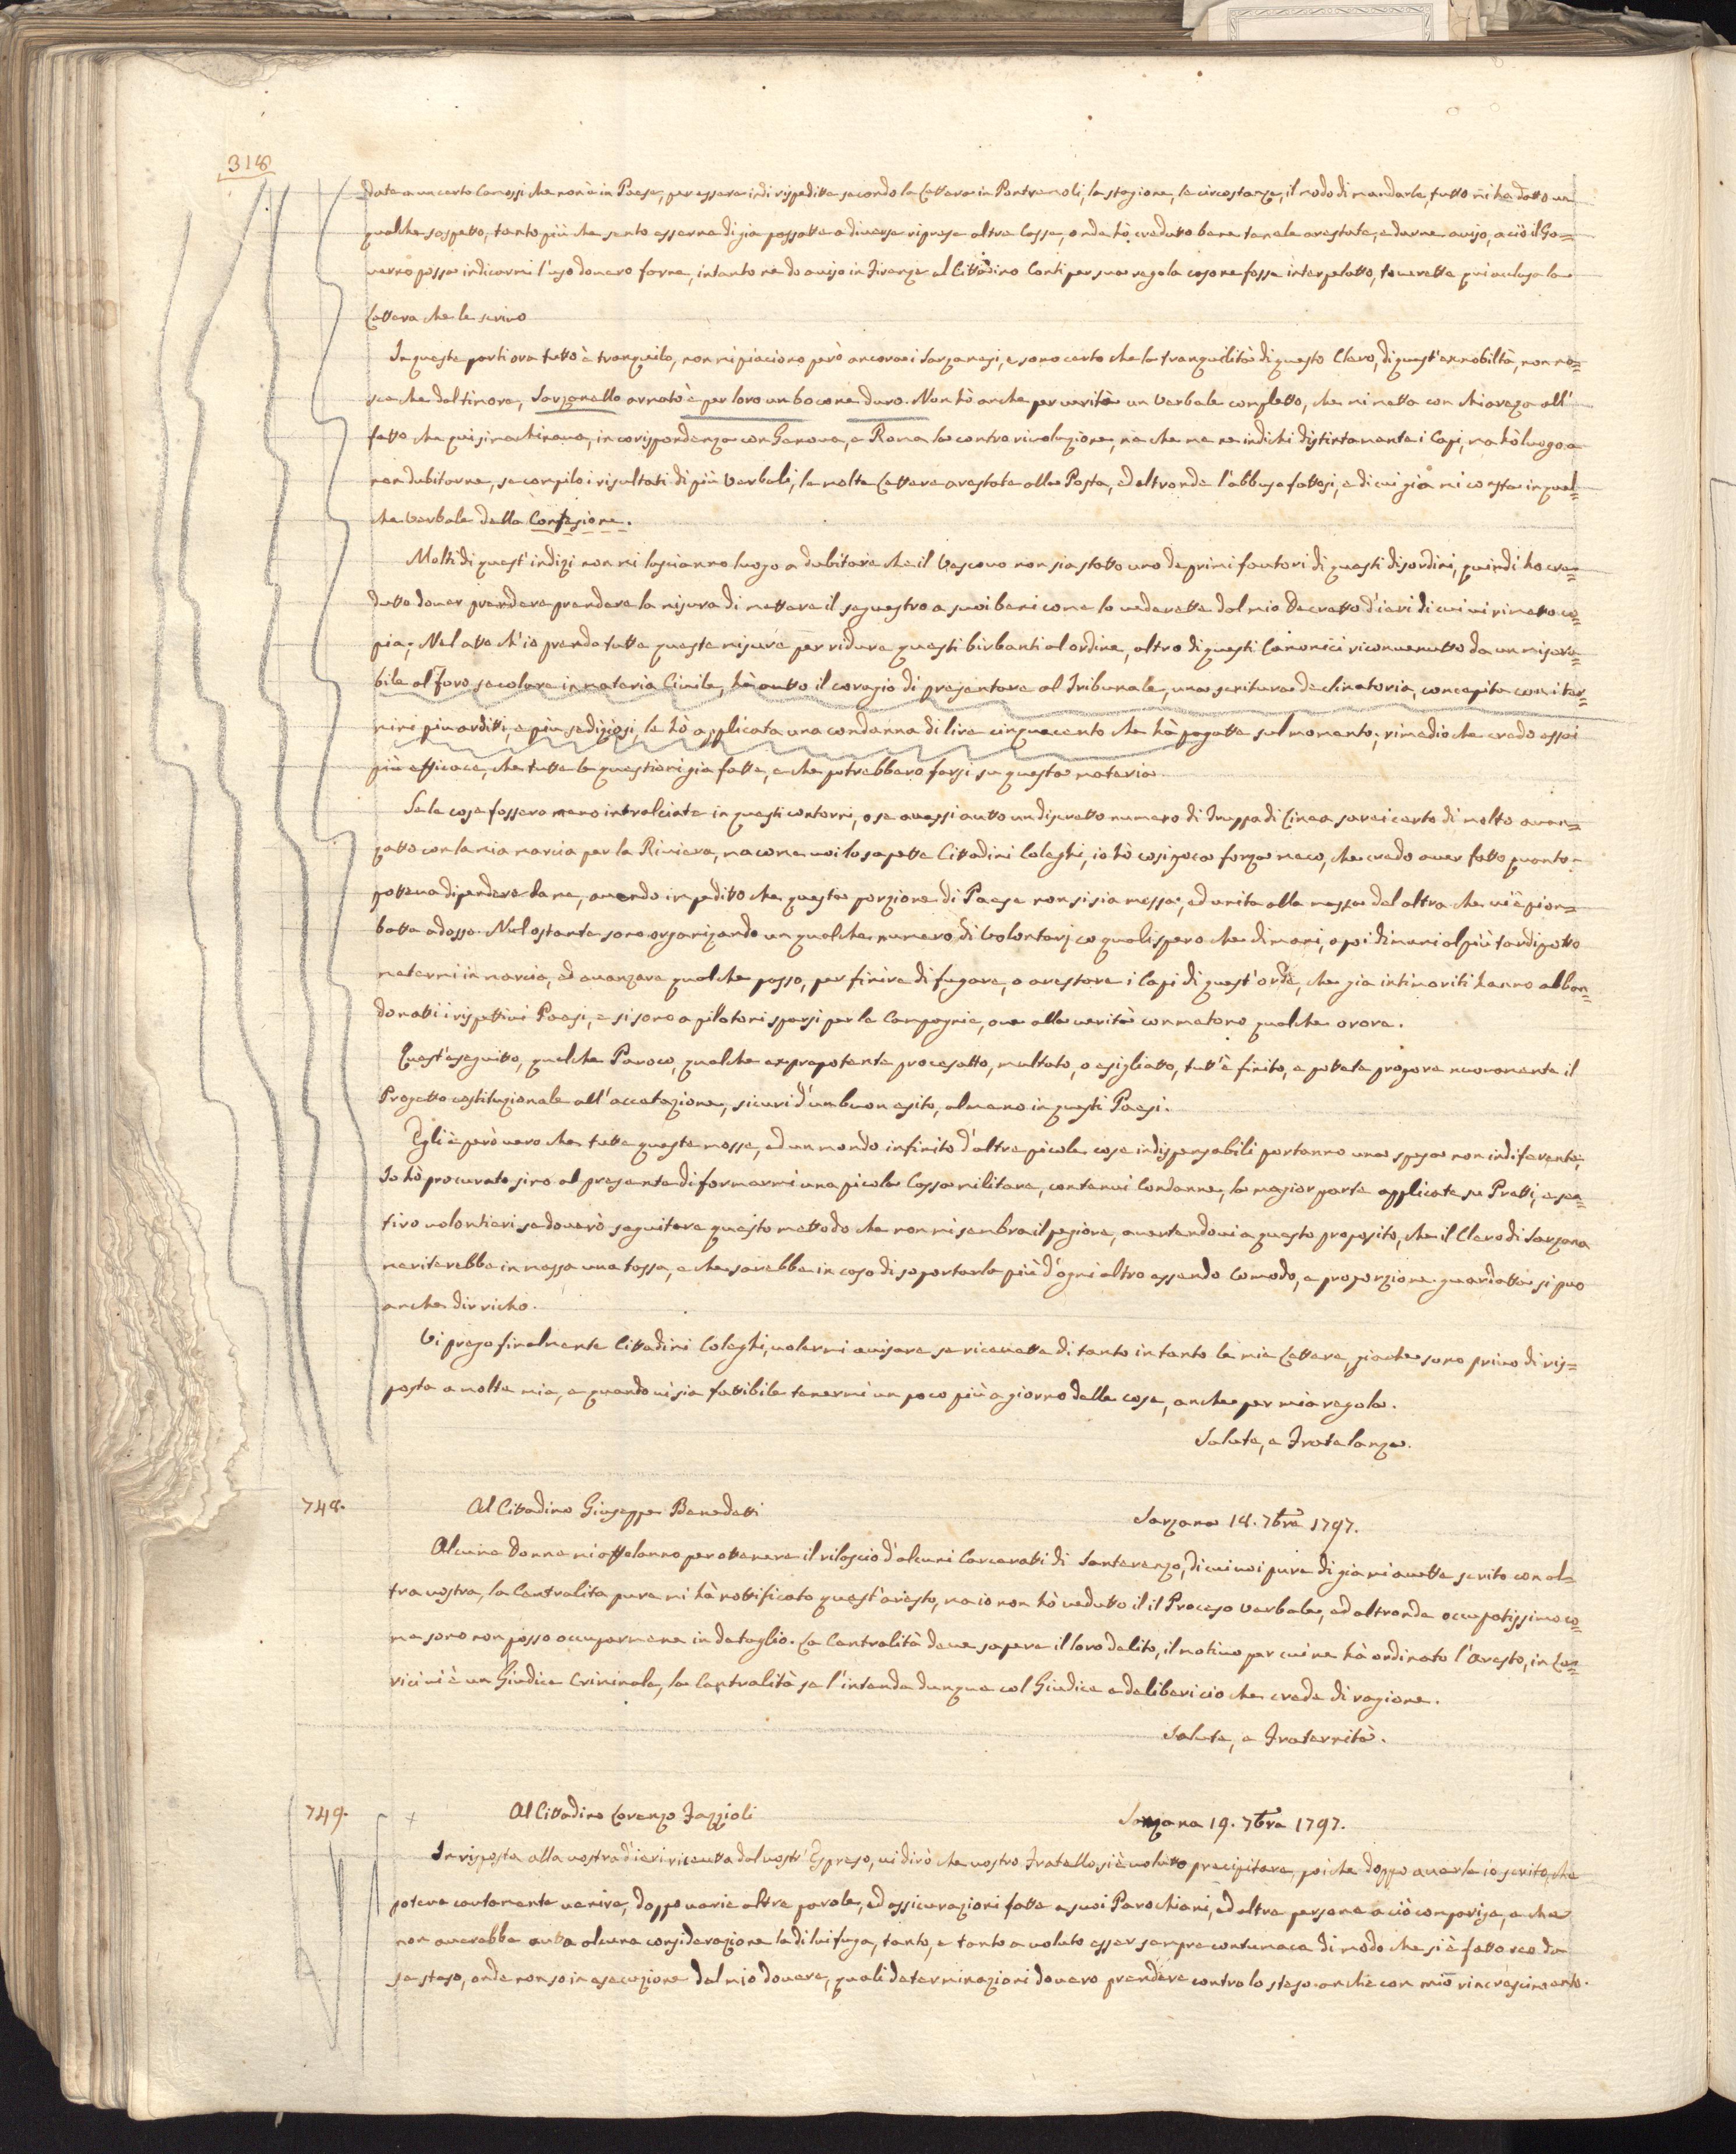 318
date a un certo Camossi che non è in Paese, per essere indi rispedite secondo la Lettera in Pontremoli, la stagione, le circostanze, il modo di mandarle, tutto mi ha datto un
qualche sospetto, tanto più che sento esserne di già passatte a diverse riprese altre Casse, onde hò credutto bene tenerle arestate, e darne aviso, aciò il Go=
verno possa indicarmi l'uso dovrò farne, intanto ne do aviso in Firenze al Cittadino Conti per sua regola caso ne fosse interpelatto, troverette qui aclusa la
Lettera che le scrivo
In queste parti ora tutto è tranquilo, non mi piaciono però ancora i Sarzanesi, e sono certo che la tranquilità di questo Clero, di quest'exnobiltà, non na=
sce che dal timore, Sarzanello armato è per loro un bocone duro. Non hò anche per verità un Verbale completto, che mi metta con chiareza all'
fatto che quì si machinava, in corispondenza con Genova, e Roma la contro rivoluzione, nè che me ne indichi distintamente i Capi, ma hò luogo a
non dubitarne, se compilo i risultati di più Verbali, le molte Lettere arestate alla Posta, ed altronde l'abbuso fattosi, e di cui già mi consta in qual=
che Verbale della Confesione.
Molti di quest'indizi non mi lasciano luogo a dubitare che il Vescovo non sia statto uno de primi fautori di questi disordini, quindi ho cre=
dutto dover prendere prendere la misura di mettere il sequestro a suoi beni come lo vederette dal mio Decretto d'ieri di cui vi rimetto co=
pia; Nel atto ch'io prendo tutte queste misure per ridure questi birbanti al ordine, altro di questi Canonici riconvenutto da un misera=
bile al foro secolare in materia Civile, hà autto il coragio di presentare al Tribunale, una scritura declinatoria, concepita con i ter=
mini più arditti, e più sediziosi, le hò applicata una condanna di lire cinquecento che hà pagatte sul momento; rimedio che credo assai
più efficace, che tutte le questioni già fatte, e che potrebbero farsi su questa materia.
Se le cose fossero meno intralciate in questi contorni, o se avessi autto un discretto numero di Truppa di Linea sarei certo di molto avan=
zatto con la mia marcia per la Riviera, ma come voi lo sapette Cittadini Coleghi, io hò così poca forza meco, che credo aver fatto quanto
potteva dipendere da me, avendo impeditto che questa porzione di Paese non si sia messa, ed unita alla massa del altra che vi è piom=
bata adosso. Nul ostante sono organizando un qualche numero di Volontarj co quali spero che dimani, o poi dimani al più tardi potto
metermi in marcia, ed avanzare qualche passo, per finire di fugare, o arestare i Capi di quest'orde, che già intimoriti hanno abban=
donatti i rispettivi Paesi, e si sono a pilotoni sparsi per le Campagnie, ove alla verità cormatono qualche orora.
Quest'eseguitto, qualche Paroco, qualche expropotente procesatto, multato, o esigliatto, tutt'è finito, e pottete propore nuovamente il
Progetto costituzionale all'accetazione, sicuri d'un buon esito, almeno in questi Paesi.
Egli è però vero che tutte queste mosse, ed un mondo infinito d'altre picole cose indispensabili portanno una spesa non indiferente;
Io hò procurato sino al presente di formarmi una picola Cassa militare, con tenui Condanne, la magior parte applicate su Pretti, e sen=
tirò volontieri se doverò seguitare questo mettodo che non mi sembra il pegiore, avertendovi a questo proposito, che il Clero di Sarzana
meriterebbe in massa una tassa, e che sarebbe in caso di soportarla più d'ogni altro essendo comodo, e proporzione guardatta si può
anche dir richo.
Vi prego finalmente Cittadini Coleghi, volermi avisare se ricevette di tanto in tanto le mie Lettere, giachè sono privo di ris=
posta a molte mie, e quando vi sia fattibile tenermi un poco più a giorno delle cose, anche per mia regola.
Salute, e Fratelanza.
748.
Al Cittadino Giuseppe Benedetti
Sarzana 18. 7bre 1797.
Alcune Donne mi affolanno per ottenere il rilascio d'alcuni Carcerati di Santerenzo, di cui voi pure di già mi avette scrito con al=
tra vostra, la Centralita pure mi hà nottificato quest'aresto, ma io non hò vedutto il il Proceso verbale, ed altronde occupatissimo co=
me sono non posso occuparmene in detaglio. La Centralità deve sapere il loro delito, il motivo per cui ne hà ordinato l'aresto, in Ler=
rici vi è un Giudice Criminale, la Centralità se l'intenda dunque col Giudice e deliberi ciò che crede di ragione.
Salute, e Fraternità.
749.
Al Cittadino Lorenzo Fazzioli
Sarzana 19. 7bre 1797.
In risposta alla vostra d'ieri ricevutta dal vostr'Espreso, vi dirò che vostro Fratello si è volutto precipitare, poichè doppo averle io scrito, che
poteva cautamente venire, doppo varie altre parole, ed assicurazioni fatte a suoi Parochiani, ed altre persone aciò comparisse, e che
non averebbe auta alcuna considerazione la di lui fuga, tanto, e tanto a voluto esser sempre contumace di modo che si è fatto reo da
se steso, onde non so in esecuzione del mio dovere, quali determinazioni doverò prendere contro lo steso anche con mio rincrescimento.